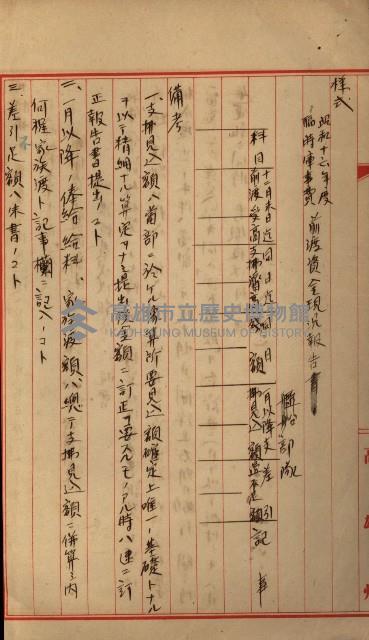 様式
昭和十六年度
臨時軍事費 前渡資金現況報告書
艦船部隊
科目
十二月末日迄 前渡受高
同日迄 支払済高
同日 残額
一月以降支払見込額
差引過不足額
記事
備考
一、支払見込額ハ当部ニ於ケル予算所要見込額確定上唯一ノ基礎トナル
ヲ以テ精細ナル算定ヲナシ提出シ金額ニ訂正ヲ要スルモノアル時ハ速ニ訂
正報告書提出ノコト
二、一月以降ノ俸給、給料、家族渡額ハ総テ支払見込額ニ併算シ内
何程家族渡ト記事欄ニ記入ノコト
三、差引不足額ハ朱書ノコト
高雄市立歴史博物館
KAOHSIUNG MUSEUM OF HISTORY
高雄州